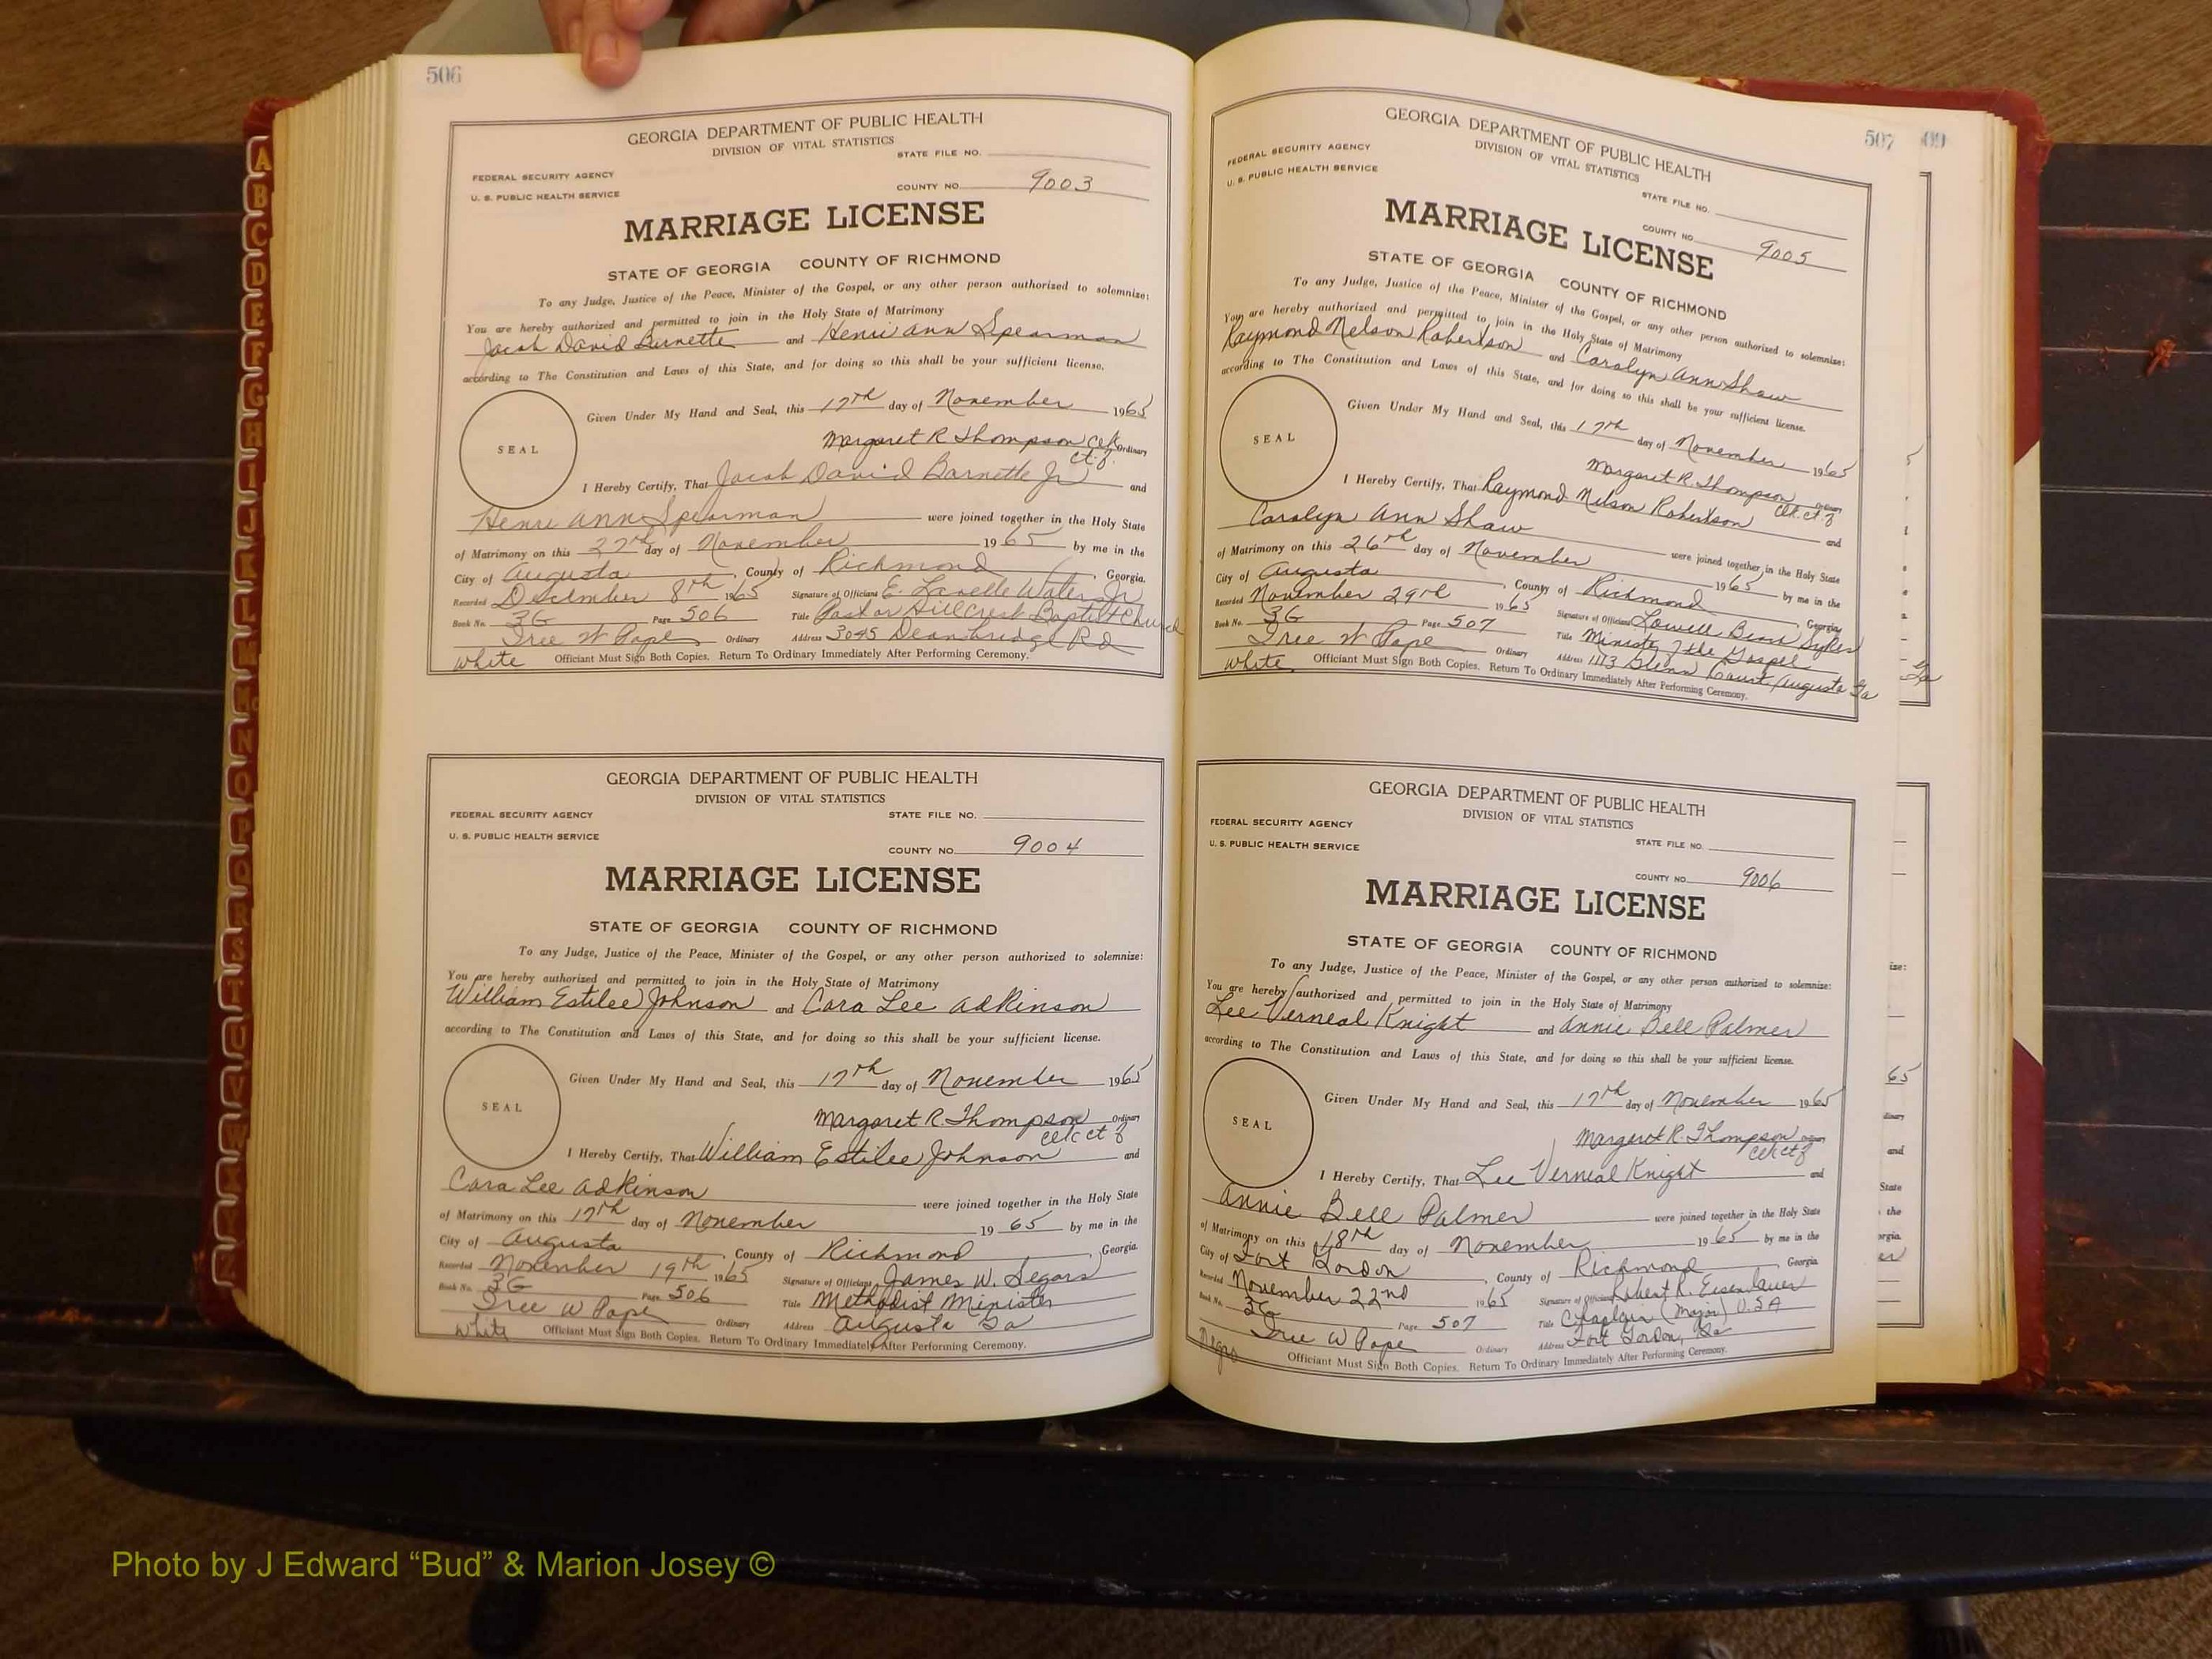 506
GEORGIA DEPARTMENT OF PUBLIC HEALTH
DIVISION OF VITAL STATISTICS
STATE FILE NO.
FEDERAL SECURITY AGENCY
U. S. PUBLIC HEALTH SERVICE
COUNTY NO. 9003
MARRIAGE LICENSE
STATE OF GEORGIA COUNTY OF RICHMOND
To any Judge, Justice of the Peace, Minister of the Gospel, or any other person authorized to solemnize:
You are hereby authorized and permitted to join in the Holy State of Matrimony
Jacob David Barnette and Henri Ann Spearman
according to The Constitution and Laws of this State, and for doing so this shall be your sufficient license.
SEAL
Given Under My Hand and Seal, this 17th day of November 1965
Margaret R Thompson Clk Ordinary
ct.
I Hereby Certify, That Jacob David Barnette Jr and
Henri Ann Spearman were joined together in the Holy State
of Matrimony on this 27th day of November 1965 by me in the
City of Augusta, County of Richmond, Georgia.
Recorded December 8th 1965 Signature of Officiant E. Lavelle Waters Jr
Book No. 3G Page 506 Title Pastor Hillcrest Baptist Church
Tree W Pope Ordinary Address 3045 Deanbridge Rd
White Officiant Must Sign Both Copies. Return To Ordinary Immediately After Performing Ceremony.
GEORGIA DEPARTMENT OF PUBLIC HEALTH
DIVISION OF VITAL STATISTICS
FEDERAL SECURITY AGENCY STATE FILE NO.
U. S. PUBLIC HEALTH SERVICE
COUNTY NO. 9004
MARRIAGE LICENSE
STATE OF GEORGIA COUNTY OF RICHMOND
To any Judge, Justice of the Peace, Minister of the Gospel, or any other person authorized to solemnize:
You are hereby authorized and permitted to join in the Holy State of Matrimony
William Estilee Johnson and Cara Lee Adkinson
according to The Constitution and Laws of this State, and for doing so this shall be your sufficient license.
SEAL
Given Under My Hand and Seal, this 17th day of November 1965
Margaret R. Thompson Ordinary
clk ct
I Hereby Certify, That William Estilee Johnson and
Cara Lee Adkinson were joined together in the Holy State
of Matrimony on this 17th day of November 1965 by me in the
City of Augusta, County of Richmond, Georgia
Recorded November 19th 1965 Signature of Officiant James W. Segars
Book No. 3G Page 506 Title Methodist Minister
Tree W Pope Ordinary Address Augusta Ga
White Officiant Must Sign Both Copies. Return To Ordinary Immediately After Performing Ceremony.
507
09
GEORGIA DEPARTMENT OF PUBLIC HEALTH
DIVISION OF VITAL STATISTICS
FEDERAL SECURITY AGENCY
U. S. PUBLIC HEALTH SERVICE
STATE FILE NO.
COUNTY NO. 9005
MARRIAGE LICENSE
STATE OF GEORGIA COUNTY OF RICHMOND
To any Judge, Justice of the Peace, Minister of the Gospel, or any other person authorized to solemnize:
You are hereby authorized and permitted to join in the Holy State of Matrimony
Raymond Nelson Robertson and Carolyn Ann Shaw
according to The Constitution and Laws of this State, and for doing so this shall be your sufficient license.
SEAL
Given Under My Hand and Seal, this 17th day of November 1965
Margaret R. Thompson Ordinary
clk. ct.
I Hereby Certify, That Raymond Nelson Robertson and
Carolyn Ann Shaw were joined together in the Holy State
of Matrimony on this 26th day of November 1965 by me in the
City of Augusta, County of Richmond, Georgia
Recorded November 29th 1965 Signature of Officiant Lowell Sykes
Book No. 3G Page 507 Title Minister of the Gospel
Tree W Pope Ordinary Address 1113 Glenn Court, Augusta Ga
White Officiant Must Sign Both Copies. Return To Ordinary Immediately After Performing Ceremony.
GEORGIA DEPARTMENT OF PUBLIC HEALTH
DIVISION OF VITAL STATISTICS
FEDERAL SECURITY AGENCY
U. S. PUBLIC HEALTH SERVICE STATE FILE NO.
COUNTY NO. 9006
MARRIAGE LICENSE
STATE OF GEORGIA COUNTY OF RICHMOND
To any Judge, Justice of the Peace, Minister of the Gospel, or any other person authorized to solemnize:
You are hereby authorized and permitted to join in the Holy State of Matrimony
Lee Verneal Knight and Annie Bell Palmer
according to The Constitution and Laws of this State, and for doing so this shall be your sufficient license.
SEAL
Given Under My Hand and Seal, this 17th day of November 1965
Margaret R. Thompson Ordinary
clk ct
I Hereby Certify, That Lee Verneal Knight and
Annie Bell Palmer were joined together in the Holy State
of Matrimony on this 18th day of November 1965 by me in the
City of Fort Gordon, County of Richmond, Georgia
Recorded November 22nd 1965 Signature of Officiant Robert R. Eisenlauer
Book No. 3G Page 507 Title Chaplain (Major) USA
Tree W Pope Ordinary Address Fort Gordon, Ga
Negro Officiant Must Sign Both Copies. Return To Ordinary Immediately After Performing Ceremony.
A
B
C
D
E
F
G
H
I
J
K
L
M
Mc
N
O
P
Q
R
S
T
U
V
W
X
Y
Z
Photo by J Edward “Bud” & Marion Josey ©